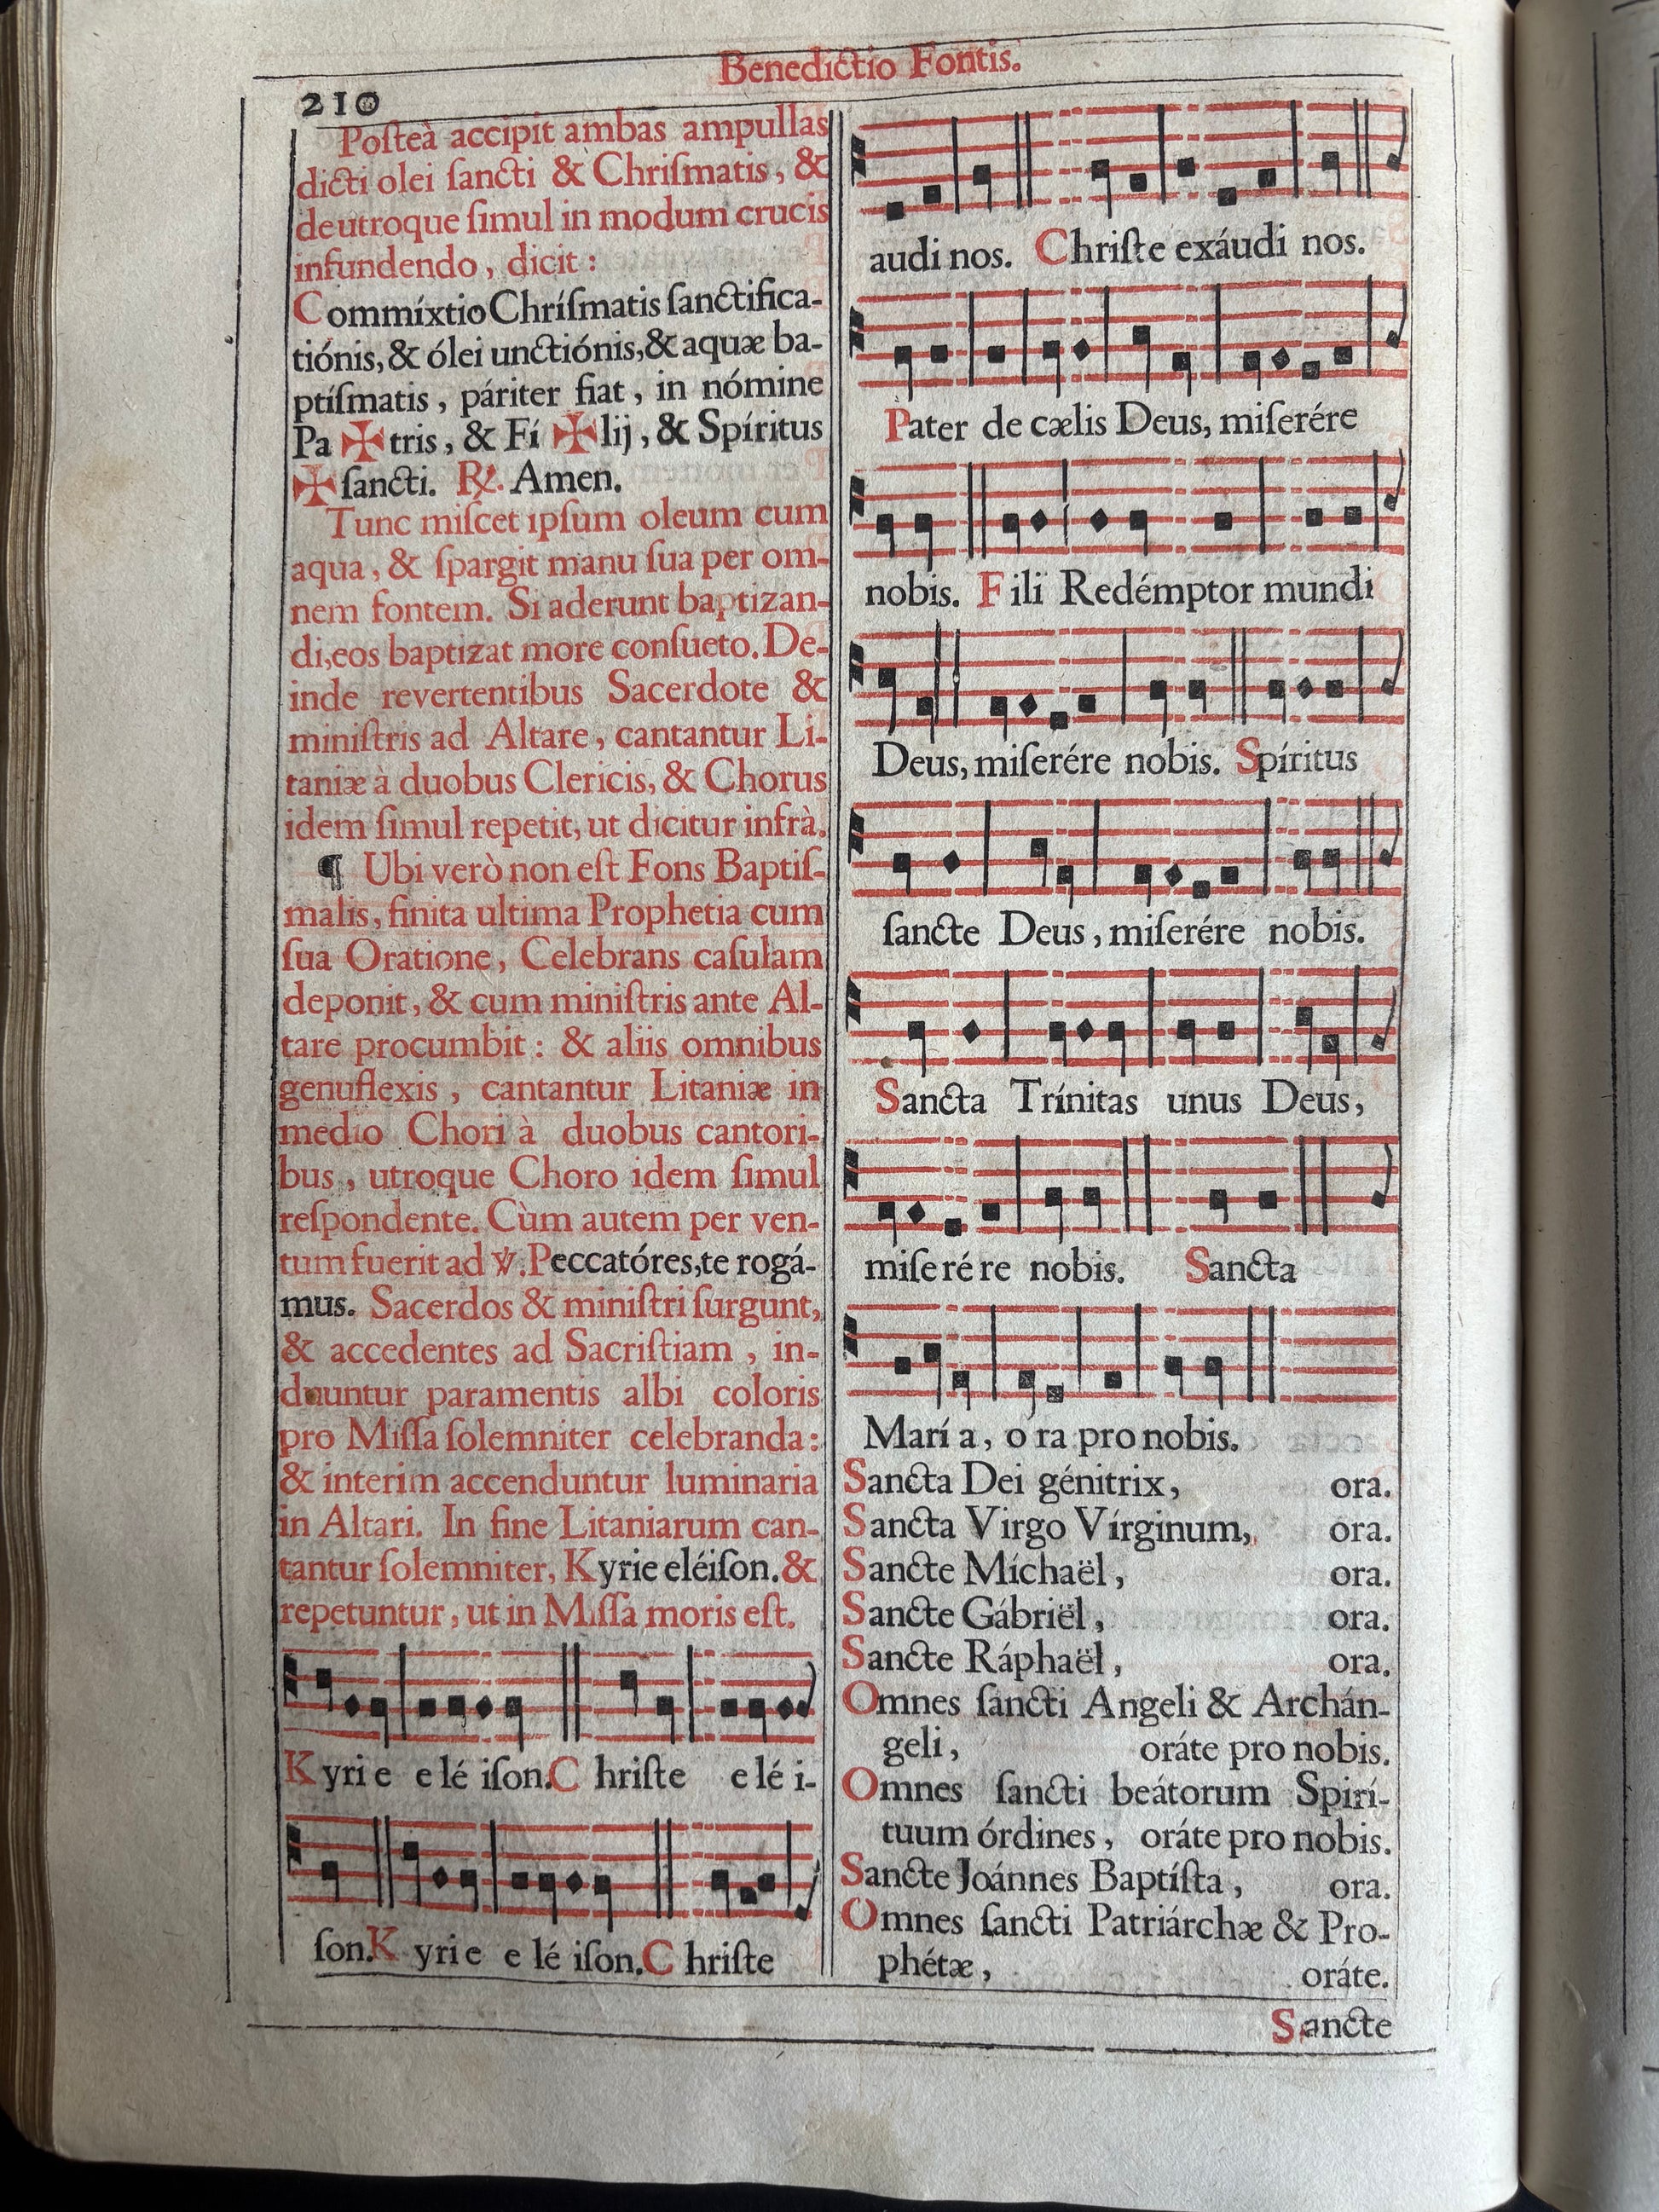 Benedictio Fontis.
210
Poſteà accipit ambas ampullas
dicti olei ſancti & Chriſmatis, &
deutroque ſimul in modum crucis
infundendo, dicit:
Commíxtio Chríſmatis ſanctifica-
tiónis, & ólei unctiónis, & aquæ ba-
ptíſmatis, páriter fiat, in nómine
Pa ✠ tris, & Fí ✠ lij, & Spíritus
✠ ſancti. ℟. Amen.
Tunc miſcet ipſum oleum cum
aqua, & ſpargit manu ſua per om-
nem fontem. Si aderunt baptizan-
di, eos baptizat more conſueto. De-
inde revertentibus Sacerdote &
miniſtris ad Altare, cantantur Li-
taniæ à duobus Clericis, & Chorus
idem ſimul repetit, ut dicitur infrà.
¶ Ubi verò non eſt Fons Baptiſ-
malis, finita ultima Prophetia cum
ſua Oratione, Celebrans caſulam
deponit, & cum miniſtris ante Al-
tare procumbit: & aliis omnibus
genuflexis, cantantur Litaniæ in
medio Chori à duobus cantori-
bus, utroque Choro idem ſimul
reſpondente. Cùm autem per ven-
tum fuerit ad ℣. Peccatóres, te rogá-
mus. Sacerdos & miniſtri ſurgunt,
& accedentes ad Sacriſtiam, in-
duuntur paramentis albi coloris
pro Miſſa ſolemniter celebranda:
& interim accenduntur luminaria
in Altari. In fine Litaniarum can-
tantur ſolemniter, Kyrie eléiſon. &
repetuntur, ut in Miſſa moris eſt.
K yri e e lé iſon. C hriſte e lé i-
ſon. K yri e e lé iſon. C hriſte
audi nos. Chriſte exáudi nos.
Pater de cælis Deus, miſerére
nobis. Fili Redémptor mundi
Deus, miſerére nobis. Spíritus
ſancte Deus, miſerére nobis.
Sancta Trínitas unus Deus,
miſe ré re nobis. Sancta
Marí a, o ra pro nobis.
Sancta Dei génitrix, ora.
Sancta Virgo Vírginum, ora.
Sancte Míchaël, ora.
Sancte Gábriël, ora.
Sancte Ráphaël, ora.
Omnes ſancti Angeli & Archán-
geli, oráte pro nobis.
Omnes ſancti beátorum Spirí-
tuum órdines, oráte pro nobis.
Sancte Joánnes Baptíſta, ora.
Omnes ſancti Patriárchæ & Pro-
phétæ, oráte.
Sancte